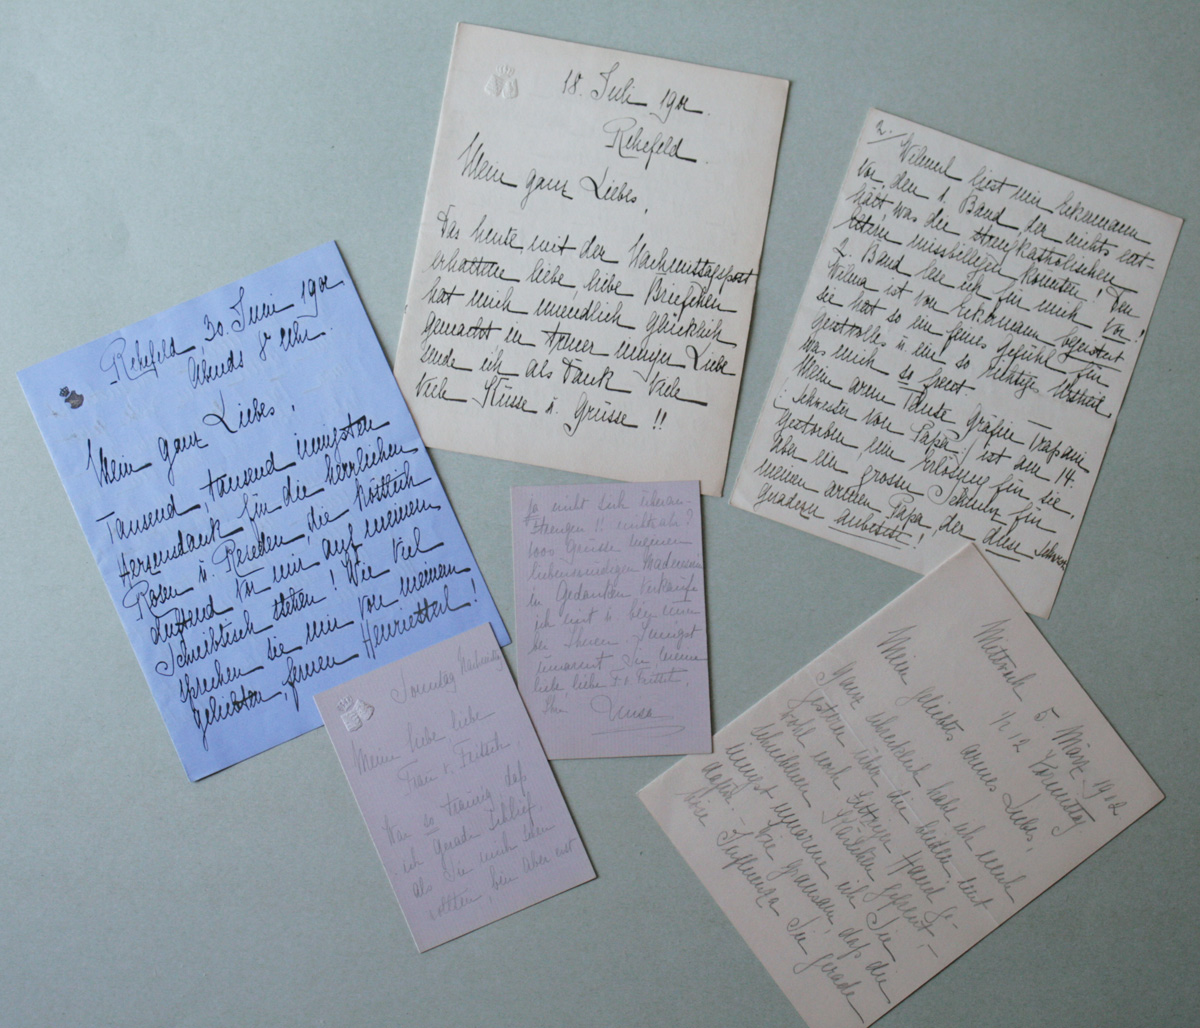 Rehefeld, 30. Juni 1902
Abends 8 Uhr.
Mein ganz Liebes,
Tausend, tausend innigsten
Herzendank für die herrlichen
Rosen u. Reseden, die köstlich
duftend vor mir auf meinem
Schreibtisch stehen! Wie viel
sprechen sie mir von meinem
geliebten, fernen Henrietterl!
18. Juli 1902.
Rehefeld.
Mein ganz Liebes,
Das heute mit der Nachmittagspost
erhaltene liebe, liebe Briefchen
hat mich unendlich glücklich
gemacht in treuer inniger Liebe
sende ich als Dank viele
viele Küsse u. Grüsse!!
2. Wilma liest mir Eckermann
vor, den 1. Band, der nichts ent-
hält was die katholischen
missbilligen könnten! Den
2. Band lese ich für mich.
Wilma ist von Eckermann begeistert
sie hat so ein feines Gefühl für
u. ein so richtiges Urtheil,
was mich so freut.
Meine arme Tante Gräfin Trapani
Schwester von Papa ist am 14.
gestorben, eine Erlösung für sie,
aber ein grosser Schmerz für
meinen armen Papa, der diese Schwester
geradezu anbetete!
Sonntag Nachmittag
Meine liebe, liebe
Frau v. Fritsch,
War so traurig daß
ich gerade schlief
als Sie mich sehen
wollten, bin aber erst
ja nicht sich überan-
strengen!! nichtwahr?
1000 Grüsse meinen
liebenswürdigen
in Gedanken verkaufe
ich mit u. bin immer
bei Ihnen. Innigst
umarmt Sie meine
liebe, liebe F. v. Fritsch,
Ihre Luisa
Mittwoch 5 März 1902
½ 12 Vormittag
Mein geliebtes armes Liebes,
Ganz schrecklich habe ich mich
gestern über die beiden, mit
wohl noch zittriger Hand ge-
schriebenen Kärtchen gefreut, –
innigst umarme ich Sie
dafür. – Wie grausam, daß die
böse Influenza Sie gerade